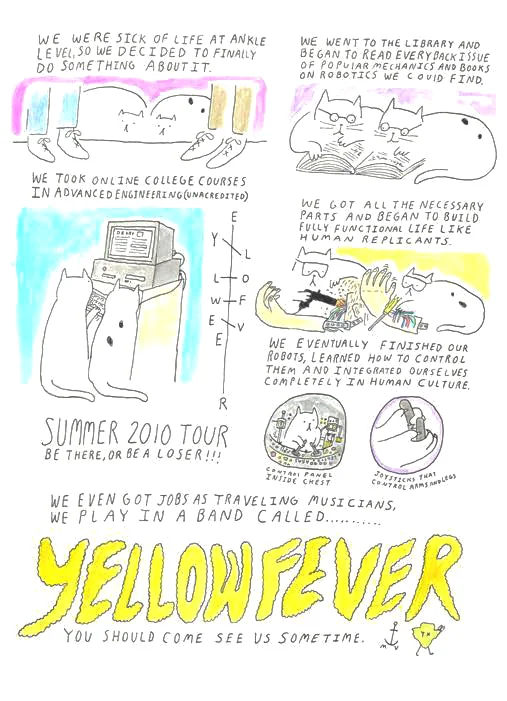 WE WERE SICK OF LIFE AT ANKLE
LEVEL, SO WE DECIDED TO FINALLY
DO SOMETHING ABOUT IT.
WE WENT TO THE LIBRARY AND
BEGAN TO READ EVERY BACK ISSUE
OF POPULAR MECHANICS AND BOOKS
ON ROBOTICS WE COULD FIND.
WE TOOK ONLINE COLLEGE COURSES
IN ADVANCED ENGINEERING (UNACREDITED)
WE GOT ALL THE NECESSARY
PARTS AND BEGAN TO BUILD
FULLY FUNCTIONAL LIFE LIKE
HUMAN REPLICANTS.
YELLOW
FEVER
WE EVENTUALLY FINISHED OUR
ROBOTS, LEARNED HOW TO CONTROL
THEM AND INTEGRATED OURSELVES
COMPLETELY IN HUMAN CULTURE.
CONTROL PANEL
INSIDE CHEST
JOYSTICKS THAT
CONTROL ARMS AND LEGS
SUMMER 2010 TOUR
BE THERE, OR BE A LOSER!!!
WE EVEN GOT JOBS AS TRAVELING MUSICIANS,
WE PLAY IN A BAND CALLED...........
YELLOW FEVER
YOU SHOULD COME SEE US SOMETIME.
M V
TX